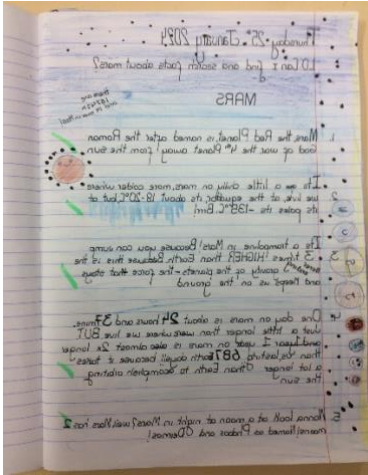 Thursday 25th January 2024
LO Can I find and search facts about mars?
MARS
1. Mars, the Red Planet, is named after the Roman
God of war the 4th Planet away! from the sun
2. Its a little chilly on mars, more colder where
we live, at the equator, its about 18-20°C but at
its poles its -138°C! Brr!
3. It's a trampoline in Mars! Because you can jump
3 times! HIGHER than Earth Because this is the
gravity of the planets - the force that stays
and keeps us on the ground
4. One day on mars is about 24 hours and 37 mins,
Just a little longer than were where we live BUT,
and 1 year on mars is also almost 2x longer
than its lasting 687 Earth days!! because it takes
a lot longer than Earth to accomplish orbiting
the sun
5. Wanna look at a moon at night in Mars? well Mars has 2
moons! Named as Phobos and Deimos!